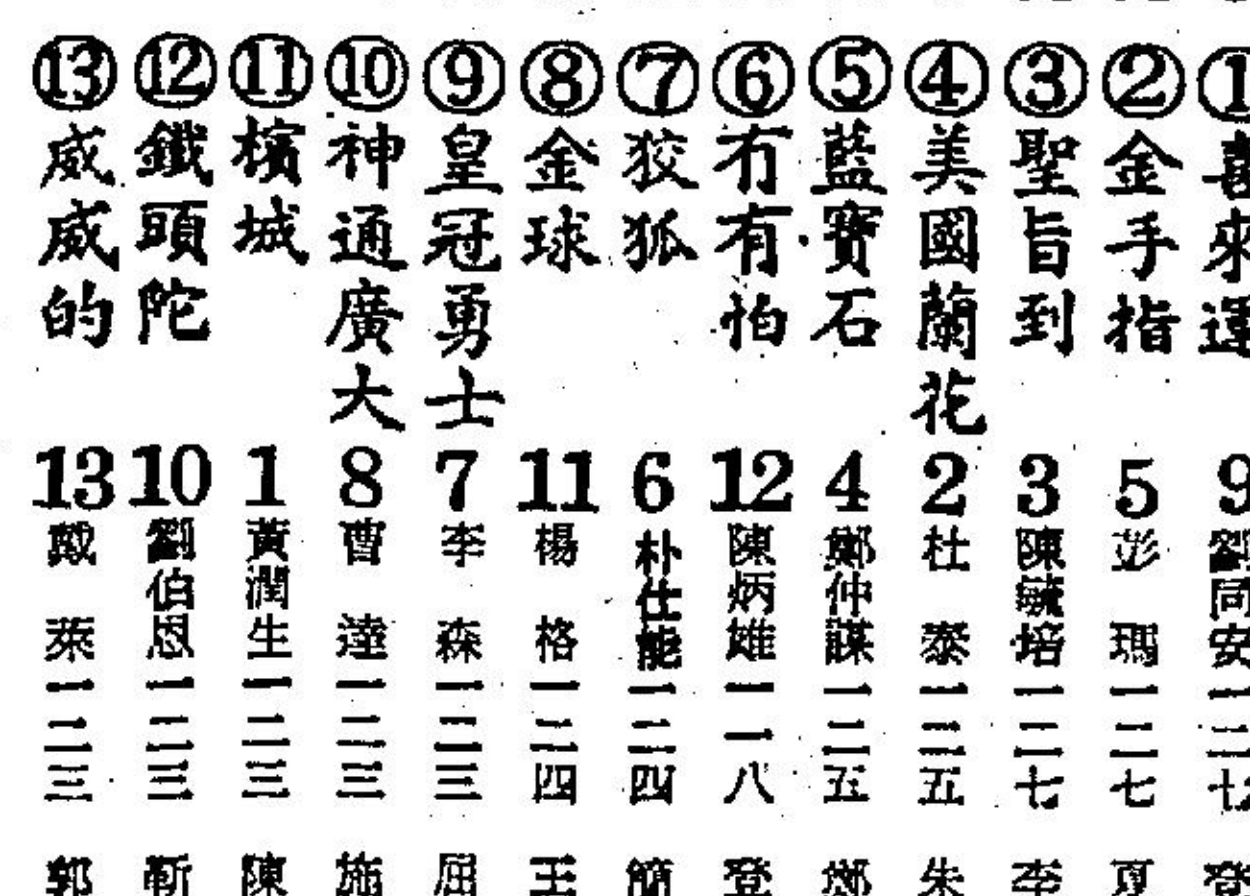 ① 喜來運 9 劉同安 一二七
② 金手指 5 彭瑪 一二七
③ 聖旨到 3 陳毓培 一二七
④ 美國蘭花 2 杜泰 一二五
⑤ 藍寶石 4 鄭仲謀 一二五
⑥ 冇有怕 12 陳炳雄 一一八
⑦ 狡狐 6 朴仕能 一二四
⑧ 金球 11 楊格 一二四
⑨ 皇冠勇士 7 李森 一二三
⑩ 神通廣大 8 曹達 一二三
⑪ 檳城 1 黃潤生 一二三
⑫ 鐵頭陀 10 劉伯恩 一二三
⑬ 威威的 13 戴萊 一二三
李
朱
鄭
簡
王
屈
施
陳
靳
郭